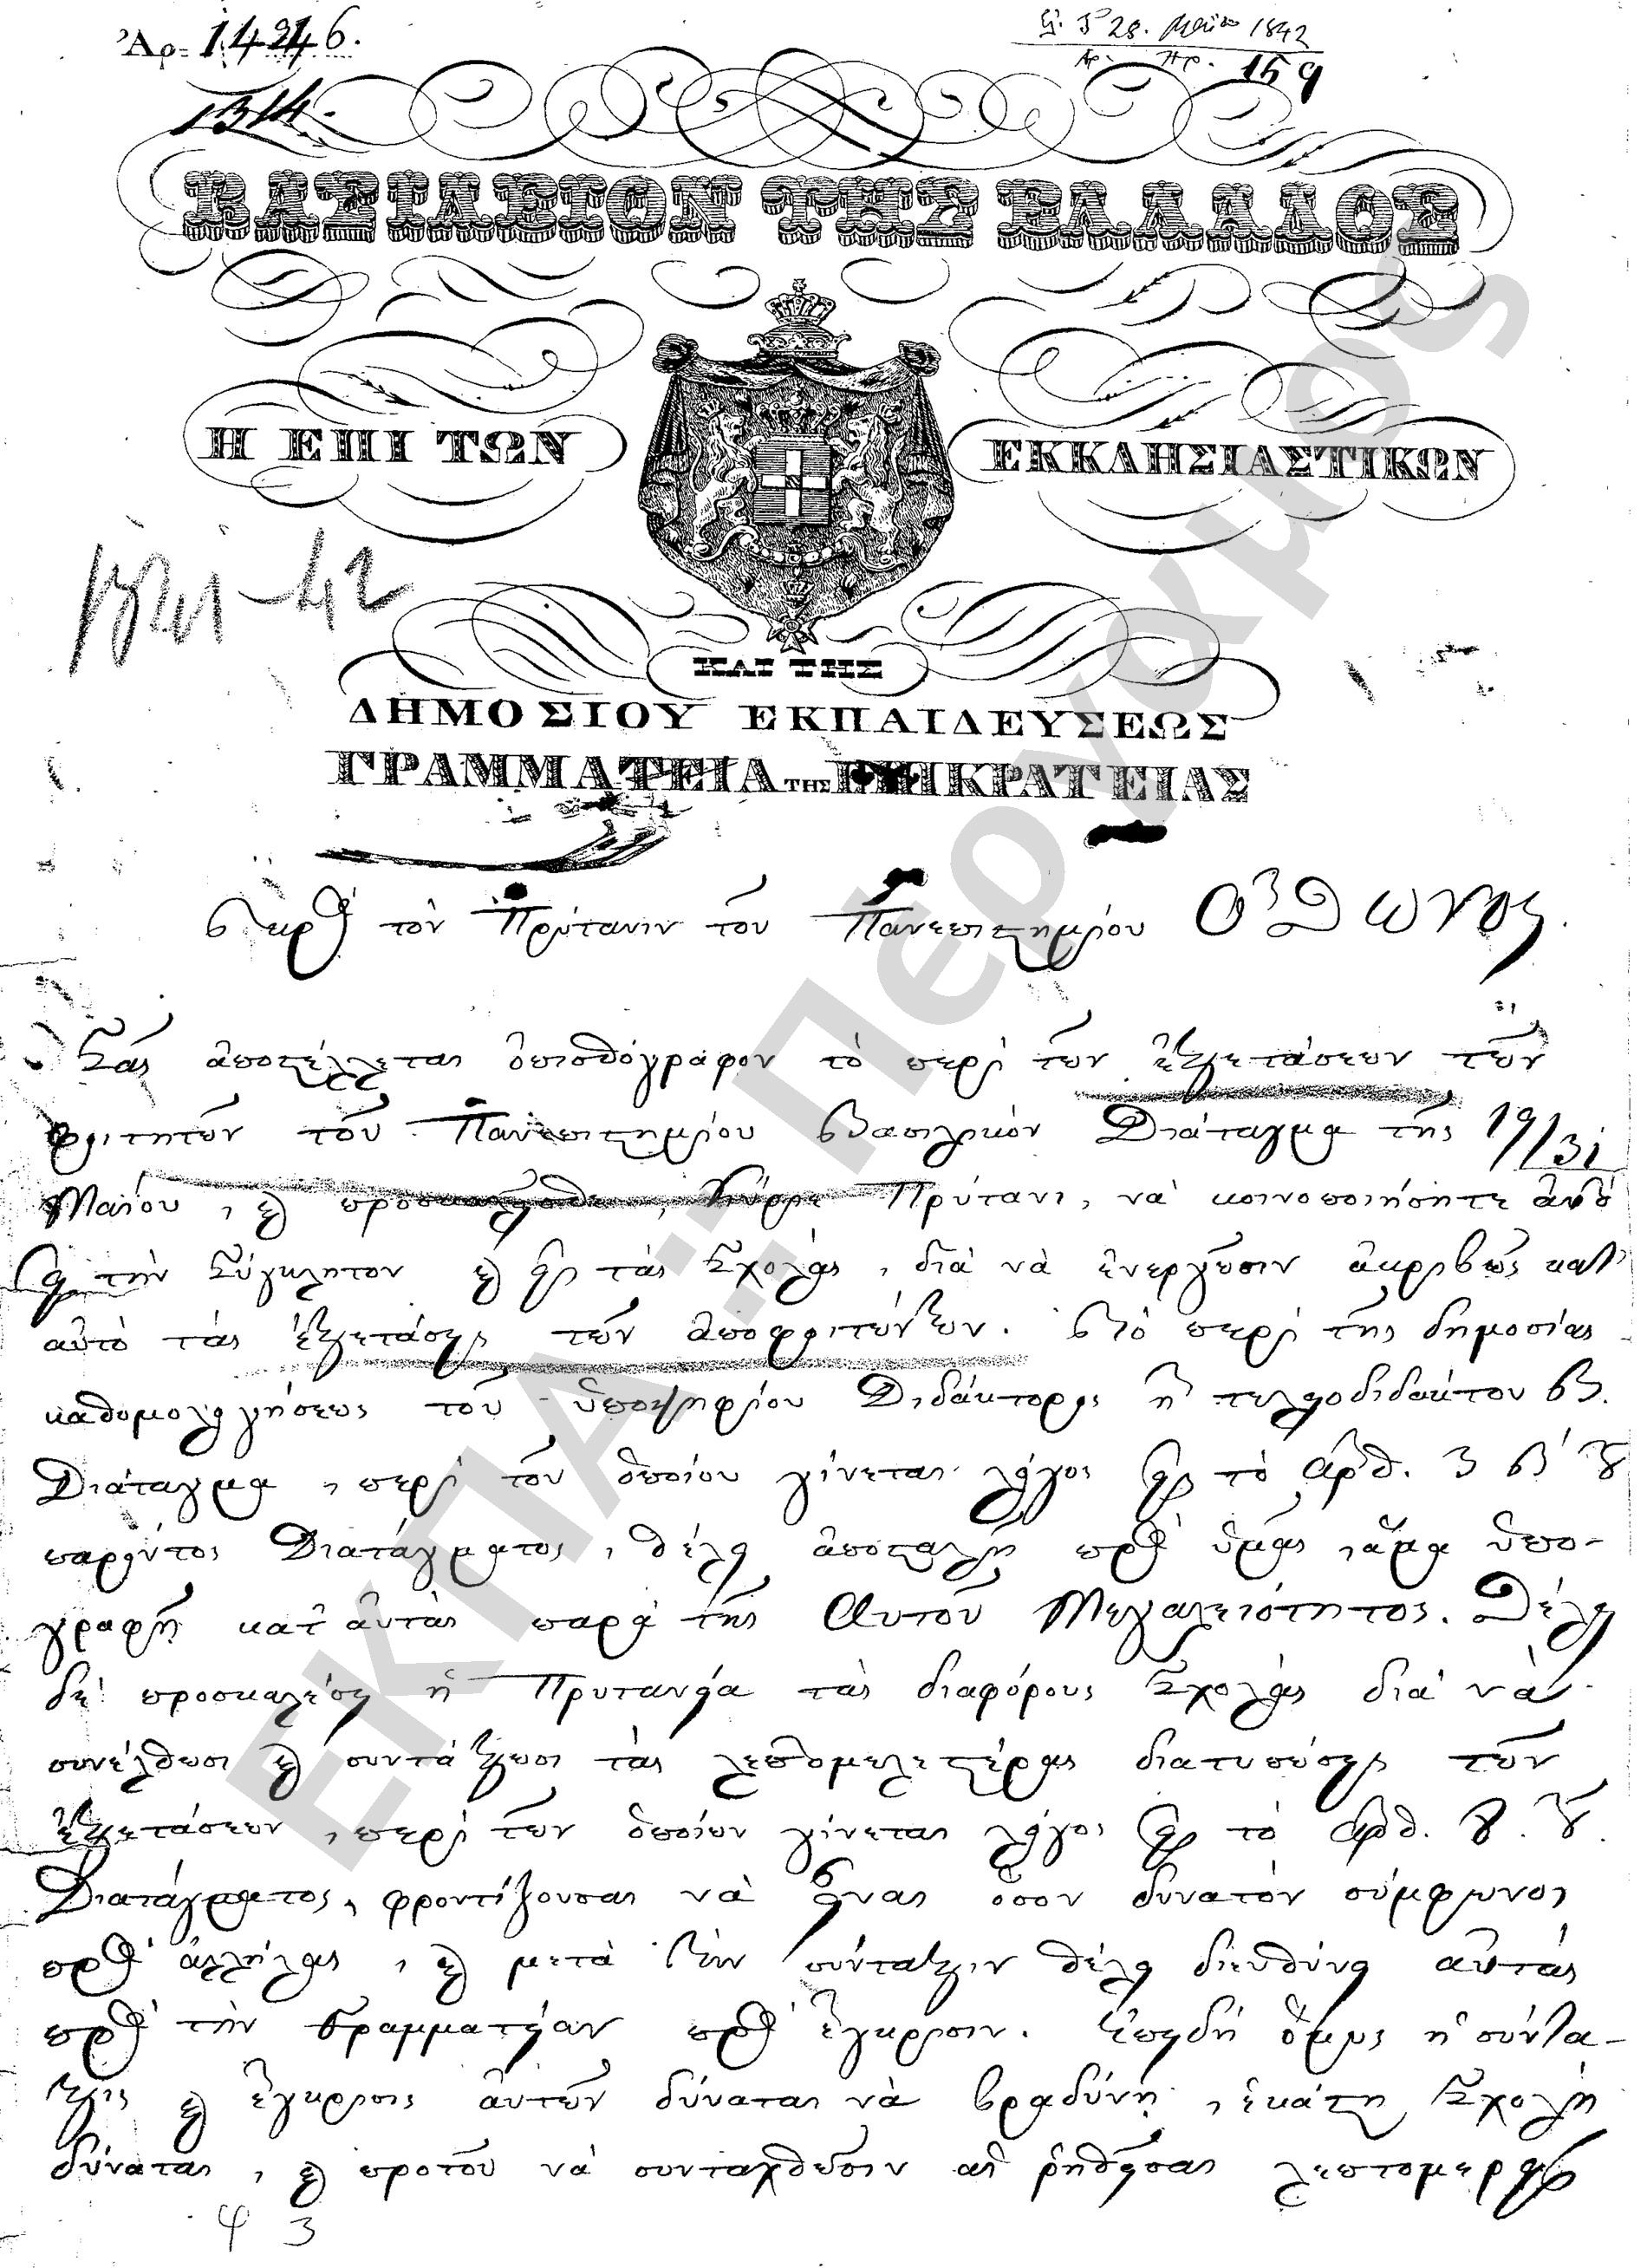 Ἀρ. 14246.
28. Μαΐου 1842
Ἀρ. Πρ. 159
1314.
ΒΑΣΙΛΕΙΟΝ ΤΗΣ ΕΛΛΑΔΟΣ
Η ΕΠΙ ΤΩΝ ΕΚΚΛΗΣΙΑΣΤΙΚΩΝ
1841-42
ΚΑΙ ΤΗΣ
ΔΗΜΟΣΙΟΥ ΕΚΠΑΙΔΕΥΣΕΩΣ
ΓΡΑΜΜΑΤΕΙΑ ΤΗΣ ΕΠΙΚΡΑΤΕΙΑΣ
Πρὸς τὸν Πρύτανιν τοῦ Πανεπιστημίου Ὄθωνος.
Σᾶς ἀποστέλλεται ὀπισθόγραφον τὸ περὶ τῶν ἐξετάσεων τῶν
φοιτητῶν τοῦ Πανεπιστημίου Βασιλικὸν Διάταγμα τῆς 19/31
Μαΐου, καὶ προσκαλεῖσθε, Κύριε Πρύτανι, νὰ κοινοποιήσητε αὐτὸ
εἰς τὴν Σύγκλητον καὶ εἰς τὰς Σχολὰς, διὰ νὰ ἐνεργῶσιν ἀκριβῶς κατ'
αὐτὸ τὰς ἐξετάσεις τῶν ἀποφοιτώντων. Τὸ περὶ τῆς δημοσίας
καθομολογήσεως τοῦ ὑποψηφίου Διδάκτορος ἢ τελειοδιδάκτου Β.
Διάταγμα, περὶ τοῦ ὁποίου γίνεται λόγος εἰς τὸ ἄρθ. 3 τοῦ
παρόντος Διατάγματος, θέλει ἀποσταλῆ πρὸς ὑμᾶς, ἅμα ὑπο-
γραφῇ κατ' αὐτὰς παρὰ τῆς Αὐτοῦ Μεγαλειότητος. Θέλει
δὲ προσκαλέσει ἡ Πρυτανεία τὰς διαφόρους Σχολὰς διὰ νὰ
συνέλθωσι καὶ συντάξωσι τὰς λεπτομελεστέρας διατυπώσεις τῶν
ἐξετάσεων, περὶ τῶν ὁποίων γίνεται λόγος εἰς τὸ ἄρθ. 8. τοῦ
Διατάγματος, φροντίζουσαι νὰ ἦναι ὅσον δυνατὸν σύμφωνοι
πρὸς ἀλλήλας, καὶ μετὰ τὴν σύνταξιν θέλει διευθύνει αὐτὰς
πρὸς τὴν Γραμματείαν πρὸς ἔγκρισιν. Ἐπειδὴ ὅμως ἡ σύντα-
ξις καὶ ἔγκρισις αὐτῶν δύναται νὰ βραδύνῃ, ἑκάστη Σχολὴ
δύναται, καὶ προτοῦ νὰ συνταχθῶσιν αἱ ῥηθεῖσαι λεπτομερεῖς
ΕΚΠΑ: Πέργαμος